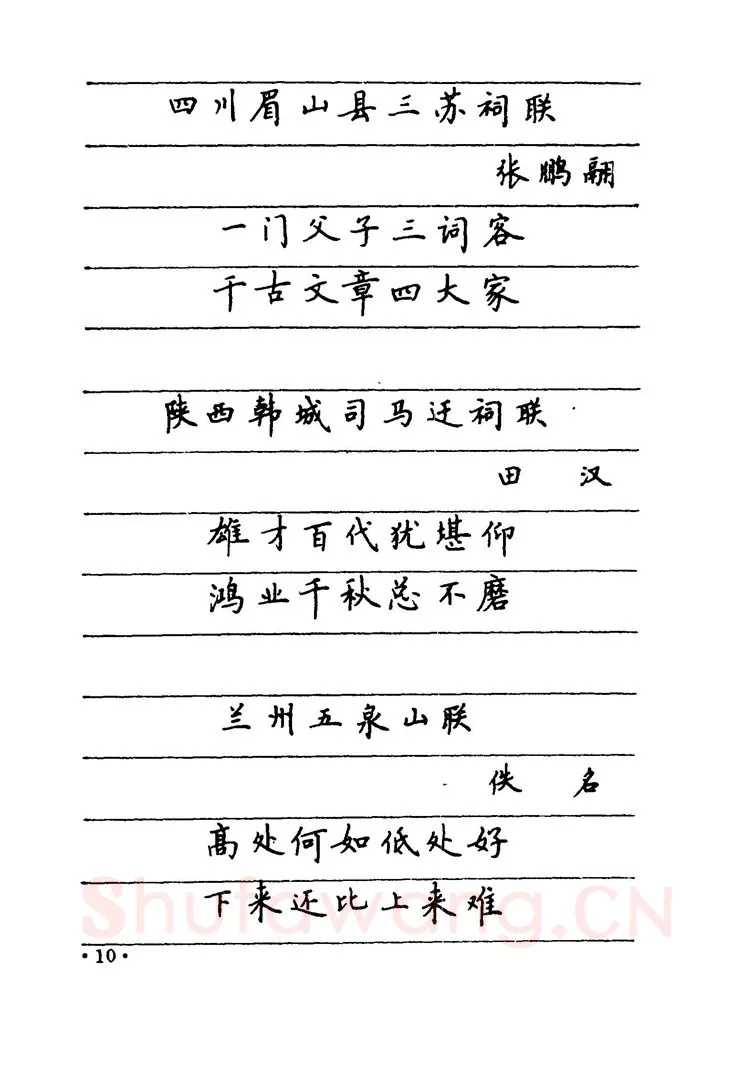 四川眉山县三苏祠联
张鹏翮
一门父子三词客
千古文章四大家
陕西韩城司马迁祠联
田 汉
雄才百代犹堪仰
鸿业千秋总不磨
兰州五泉山联
佚 名
高处何如低处好
下来还比上来难
Shufawang.CN
·10·